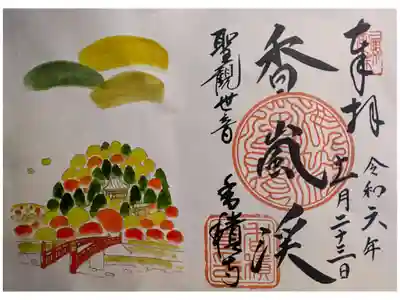 奉拝
令和六年
十一月二十三日
香嵐渓
聖観世音
香積寺